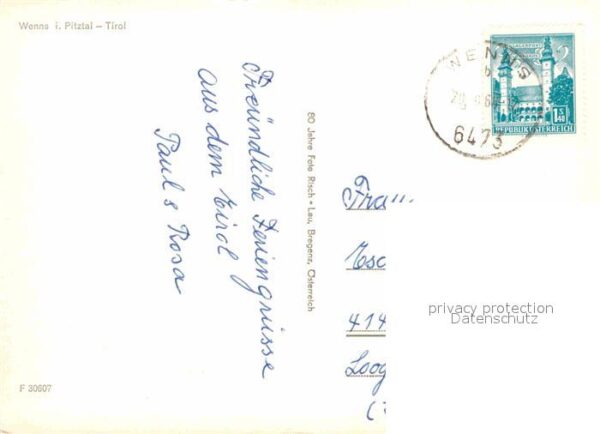 Wenns i. Pitztal – Tirol
Freündliche Feriengrüsse
aus dem Tirol
Paul & Rosa
80 Jahre Foto Risch - Lau, Bregenz, Österreich
WENNS
b
6473
1.S 40
REPUBLIK ÖSTERREICH
414
privacy protection
Datenschutz
F 30607